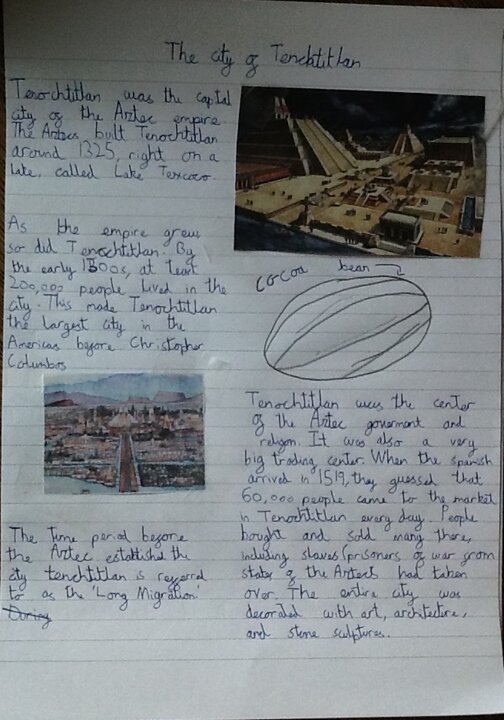 The city of Tenchtitlan
Tenochtitlan was the capital
city of the Aztec empire.
The Aztecs built Tenochtitlan
around 1325, right on a
lake, called Lake Texcoco.
As the empire grew
so did Tenochtitlan. By
the early 1500s, at least
200,000 people lived in the
city. This made Tenochtitlan
the largest city in the
Americas before Christopher
Columbos
The time period before
the Aztec established the
city tenchtitlan is referred
to as the 'Long Migration'
During
cocoa bean
Tenochtitlan was the center
of the Aztec government and
religion. It was also a very
big trading center. When the spanish
arrived in 1519, they guessed that
60,000 people came to the market
in Tenochtitlan every day. People
bought and sold many there,
including slaves/prisoners of war from
states of the Artecs had taken
over. The entire city was
decorated with art, architecture,
and stone sculptures.